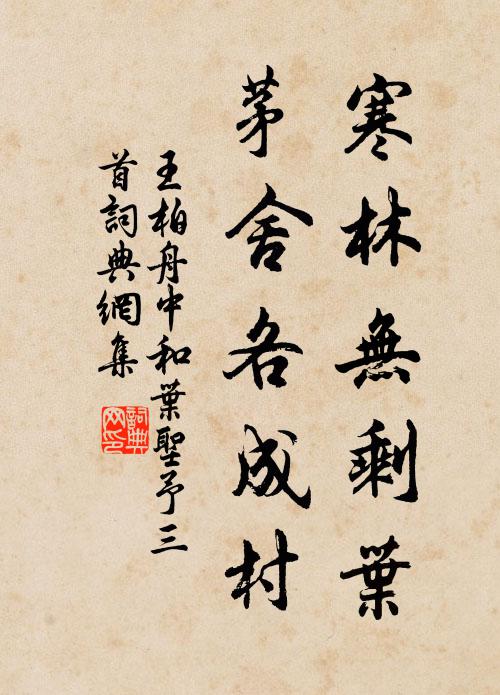 寒林無剩葉
茅舍各成村
王柏舟中和葉聖予三
首詞典網集
詞典
网印